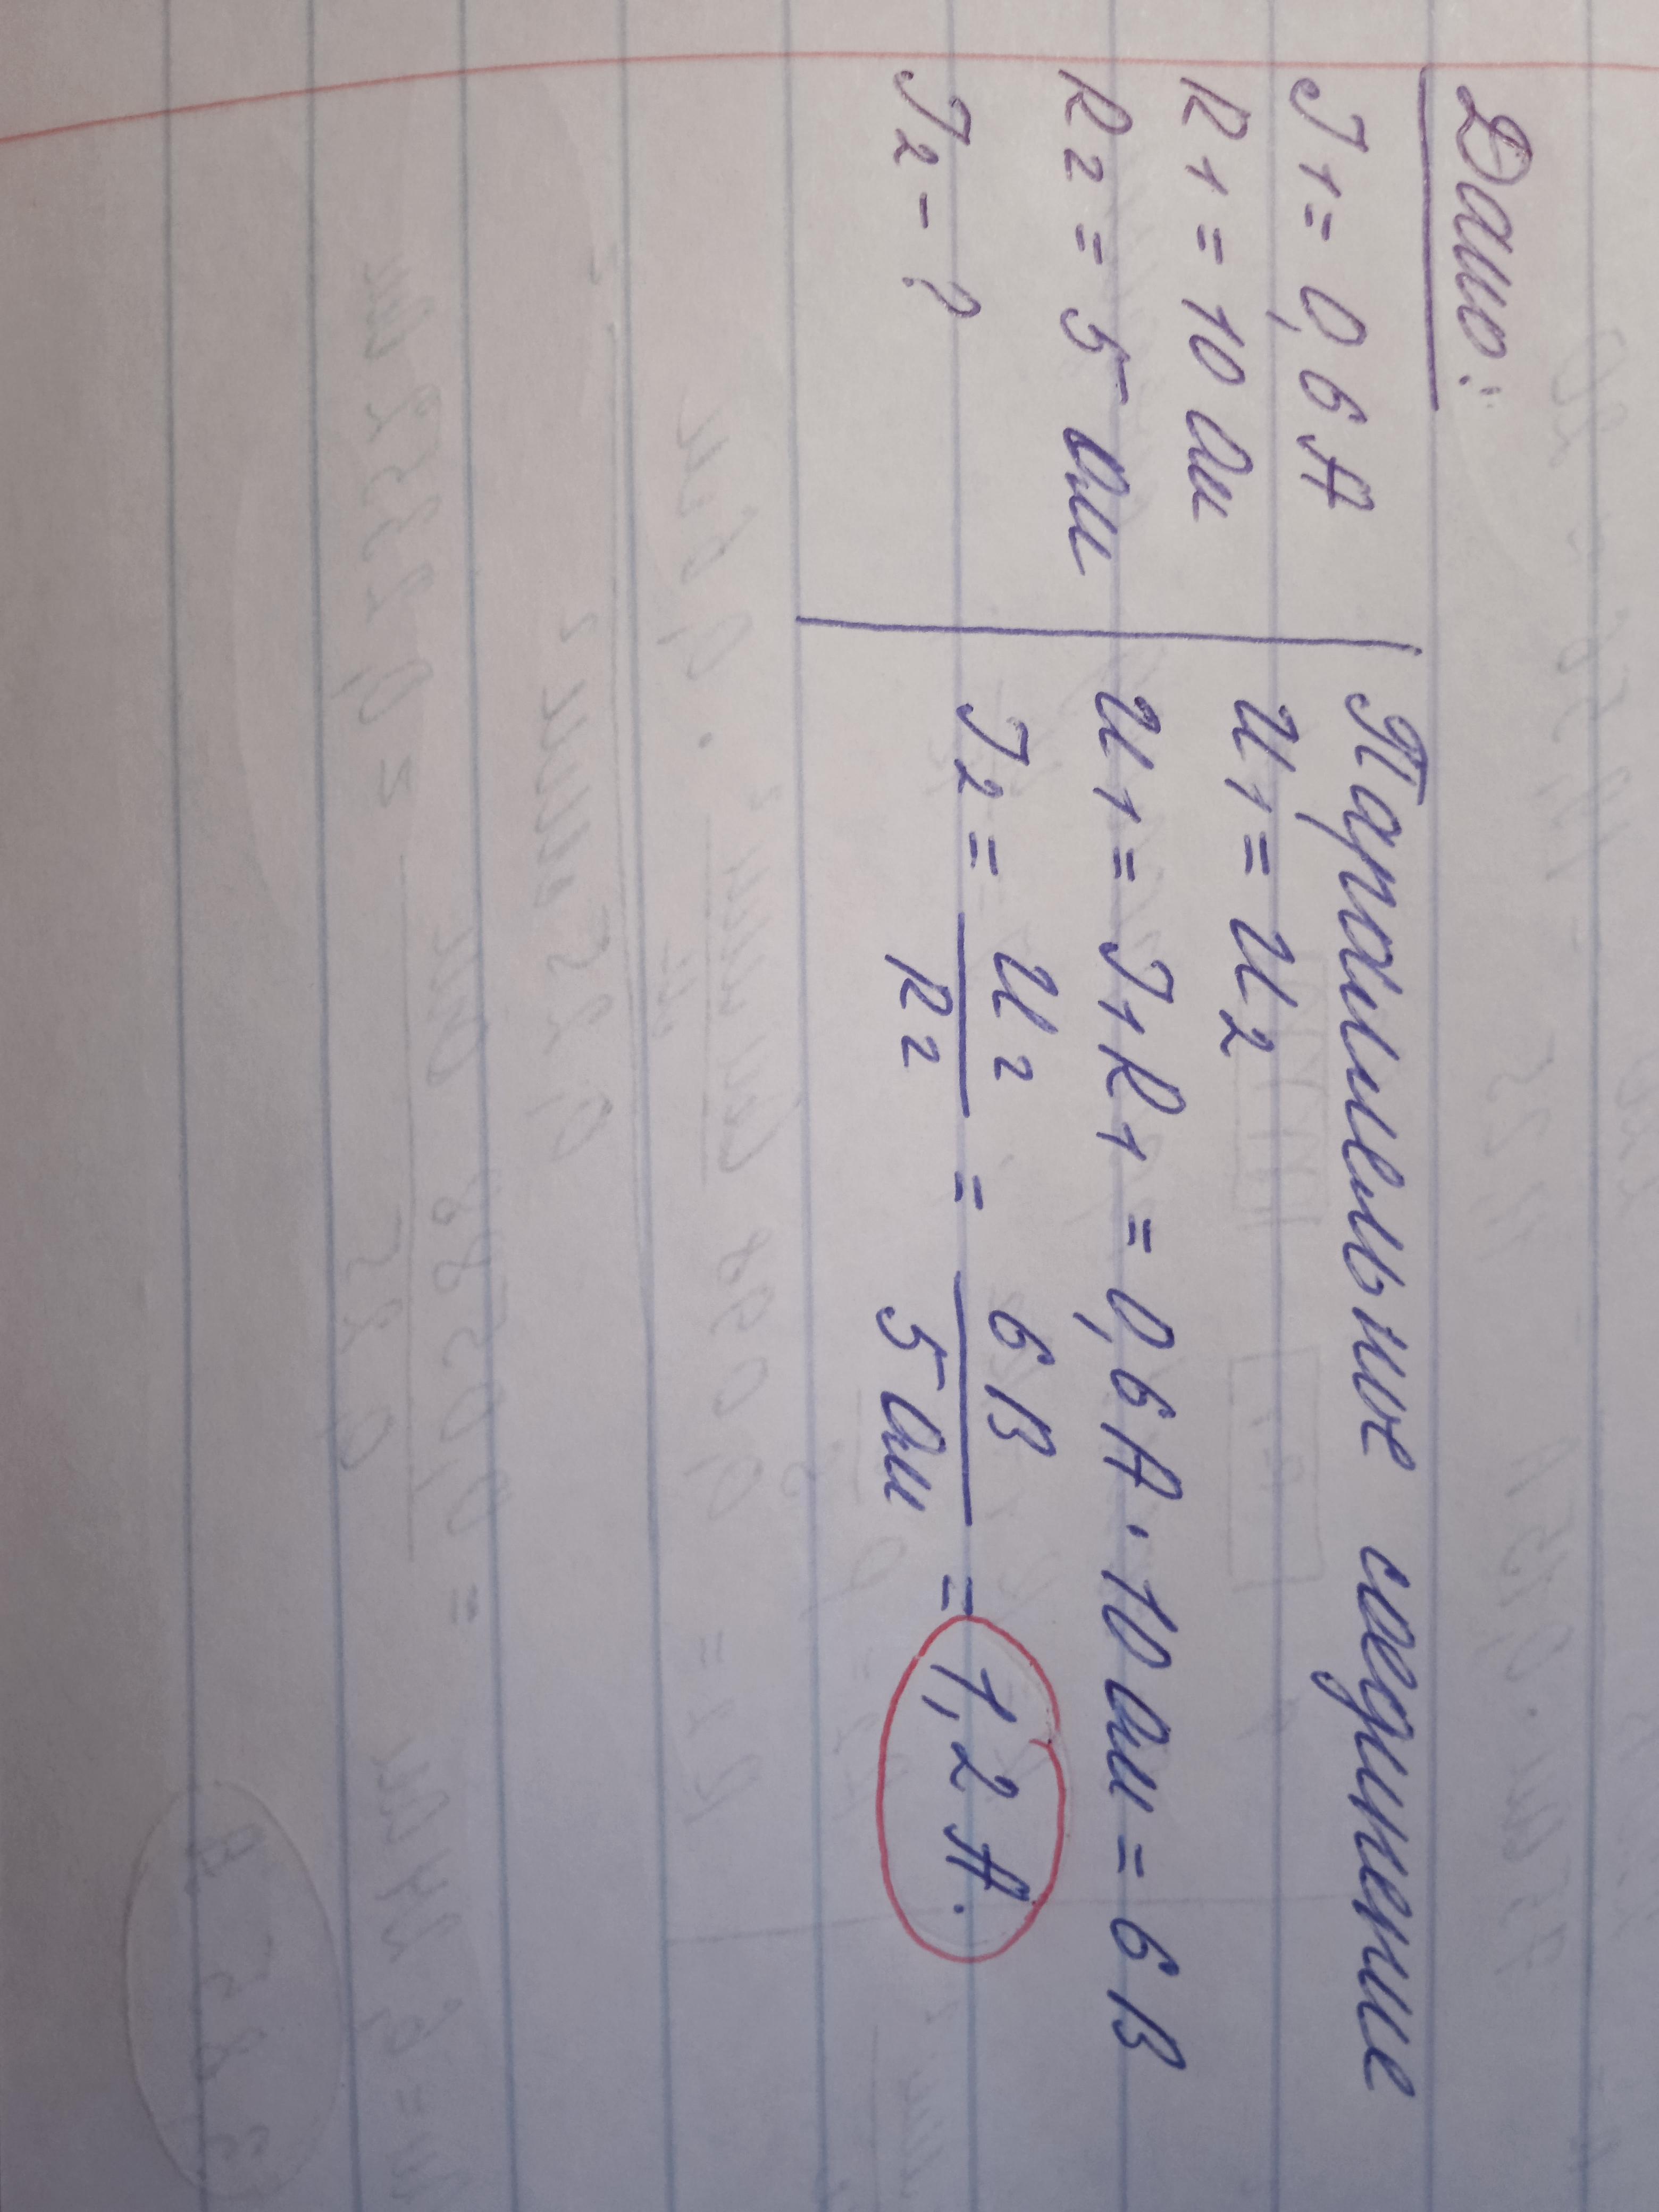 Дано:
I1 = 0,6 А
R1 = 10 Ом
R2 = 5 Ом
I2 - ?
Параллельное соединение
U1 = U2
U1 = I1R1 = 0,6 А · 10 Ом = 6 В
I2 = U2 / R2 = 6 В / 5 Ом = 1,2 А.